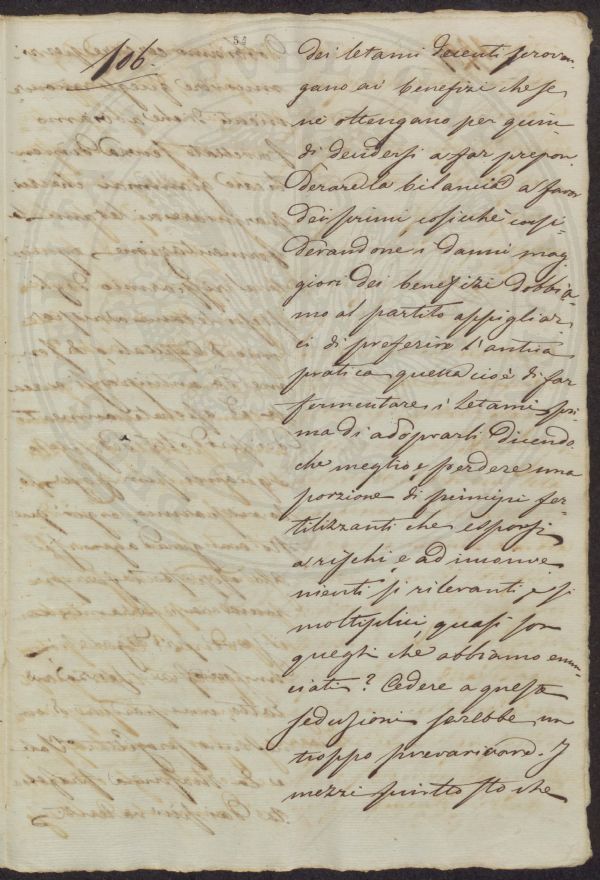 106.
54
dei letami recenti prova
gano ai benefizi che se
ne ottengano per quin
di decidersi a far prepon
derare la bilancia a favor
dei primi, cosicchè consi
derandone i danni mag
giori dei benefizi dobbia
mo al partito appigliar
ci di preferire l'antica
pratica quella cioè di far
fermentare i letami pri
ma di adoprarli dicendo
che meglio è perdere una
porzione di principi fer
tilizzanti che esporsi
a rischi e ad inconve
nienti si rilevanti, e si
moltiplici, quasi son
quegli che abbiamo enun
ciati? Cedere a queste
seduzioni sarebbe un
troppo prevaricare. I
mezzi piuttosto che